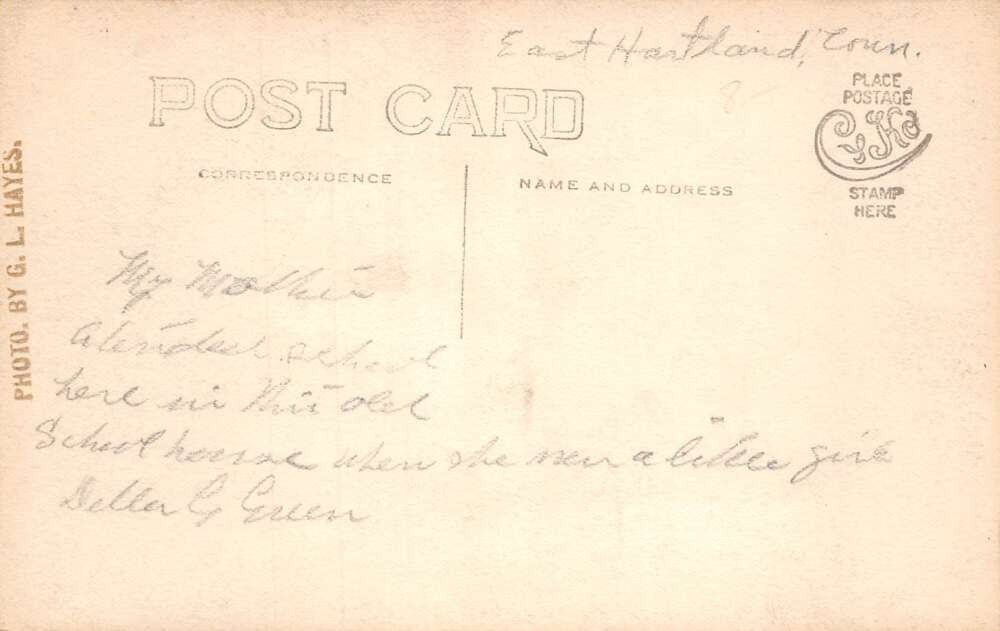 East Hartland, Conn.
8-
POST CARD
PLACE
POSTAGE
CyKo
STAMP
HERE
CORRESPONDENCE
NAME AND ADDRESS
PHOTO. BY G. L. HAYES.
My Mother
attended school
here in this old
School house when she was a little girl
Della G Green